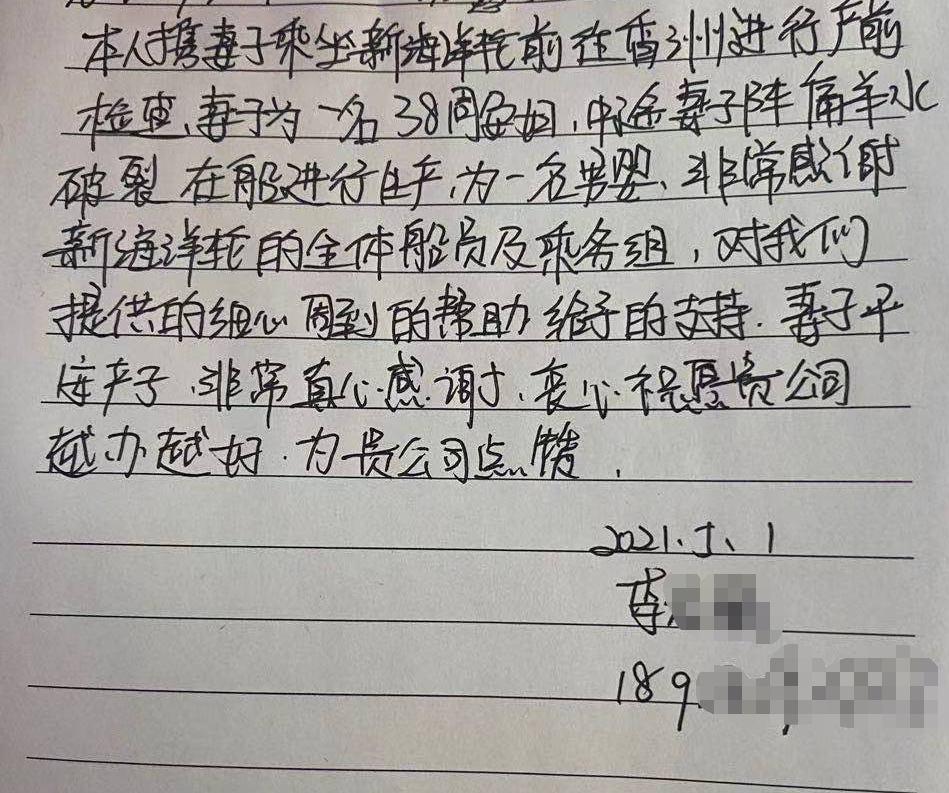 本人携妻子乘坐新海洋轮前往香洲进行产前
检查、妻子为一名38周孕妇,中途妻子阵痛羊水
破裂 在船进行生产,为一名男婴、非常感谢
新海洋轮的全体船员及乘务组,对我们
提供的细心周到的帮助 给予的支持.妻子平
安产子、非常真心感谢、衷心祝愿贵公司
越办越好.为贵公司点赞,
2021.5、1
李
189